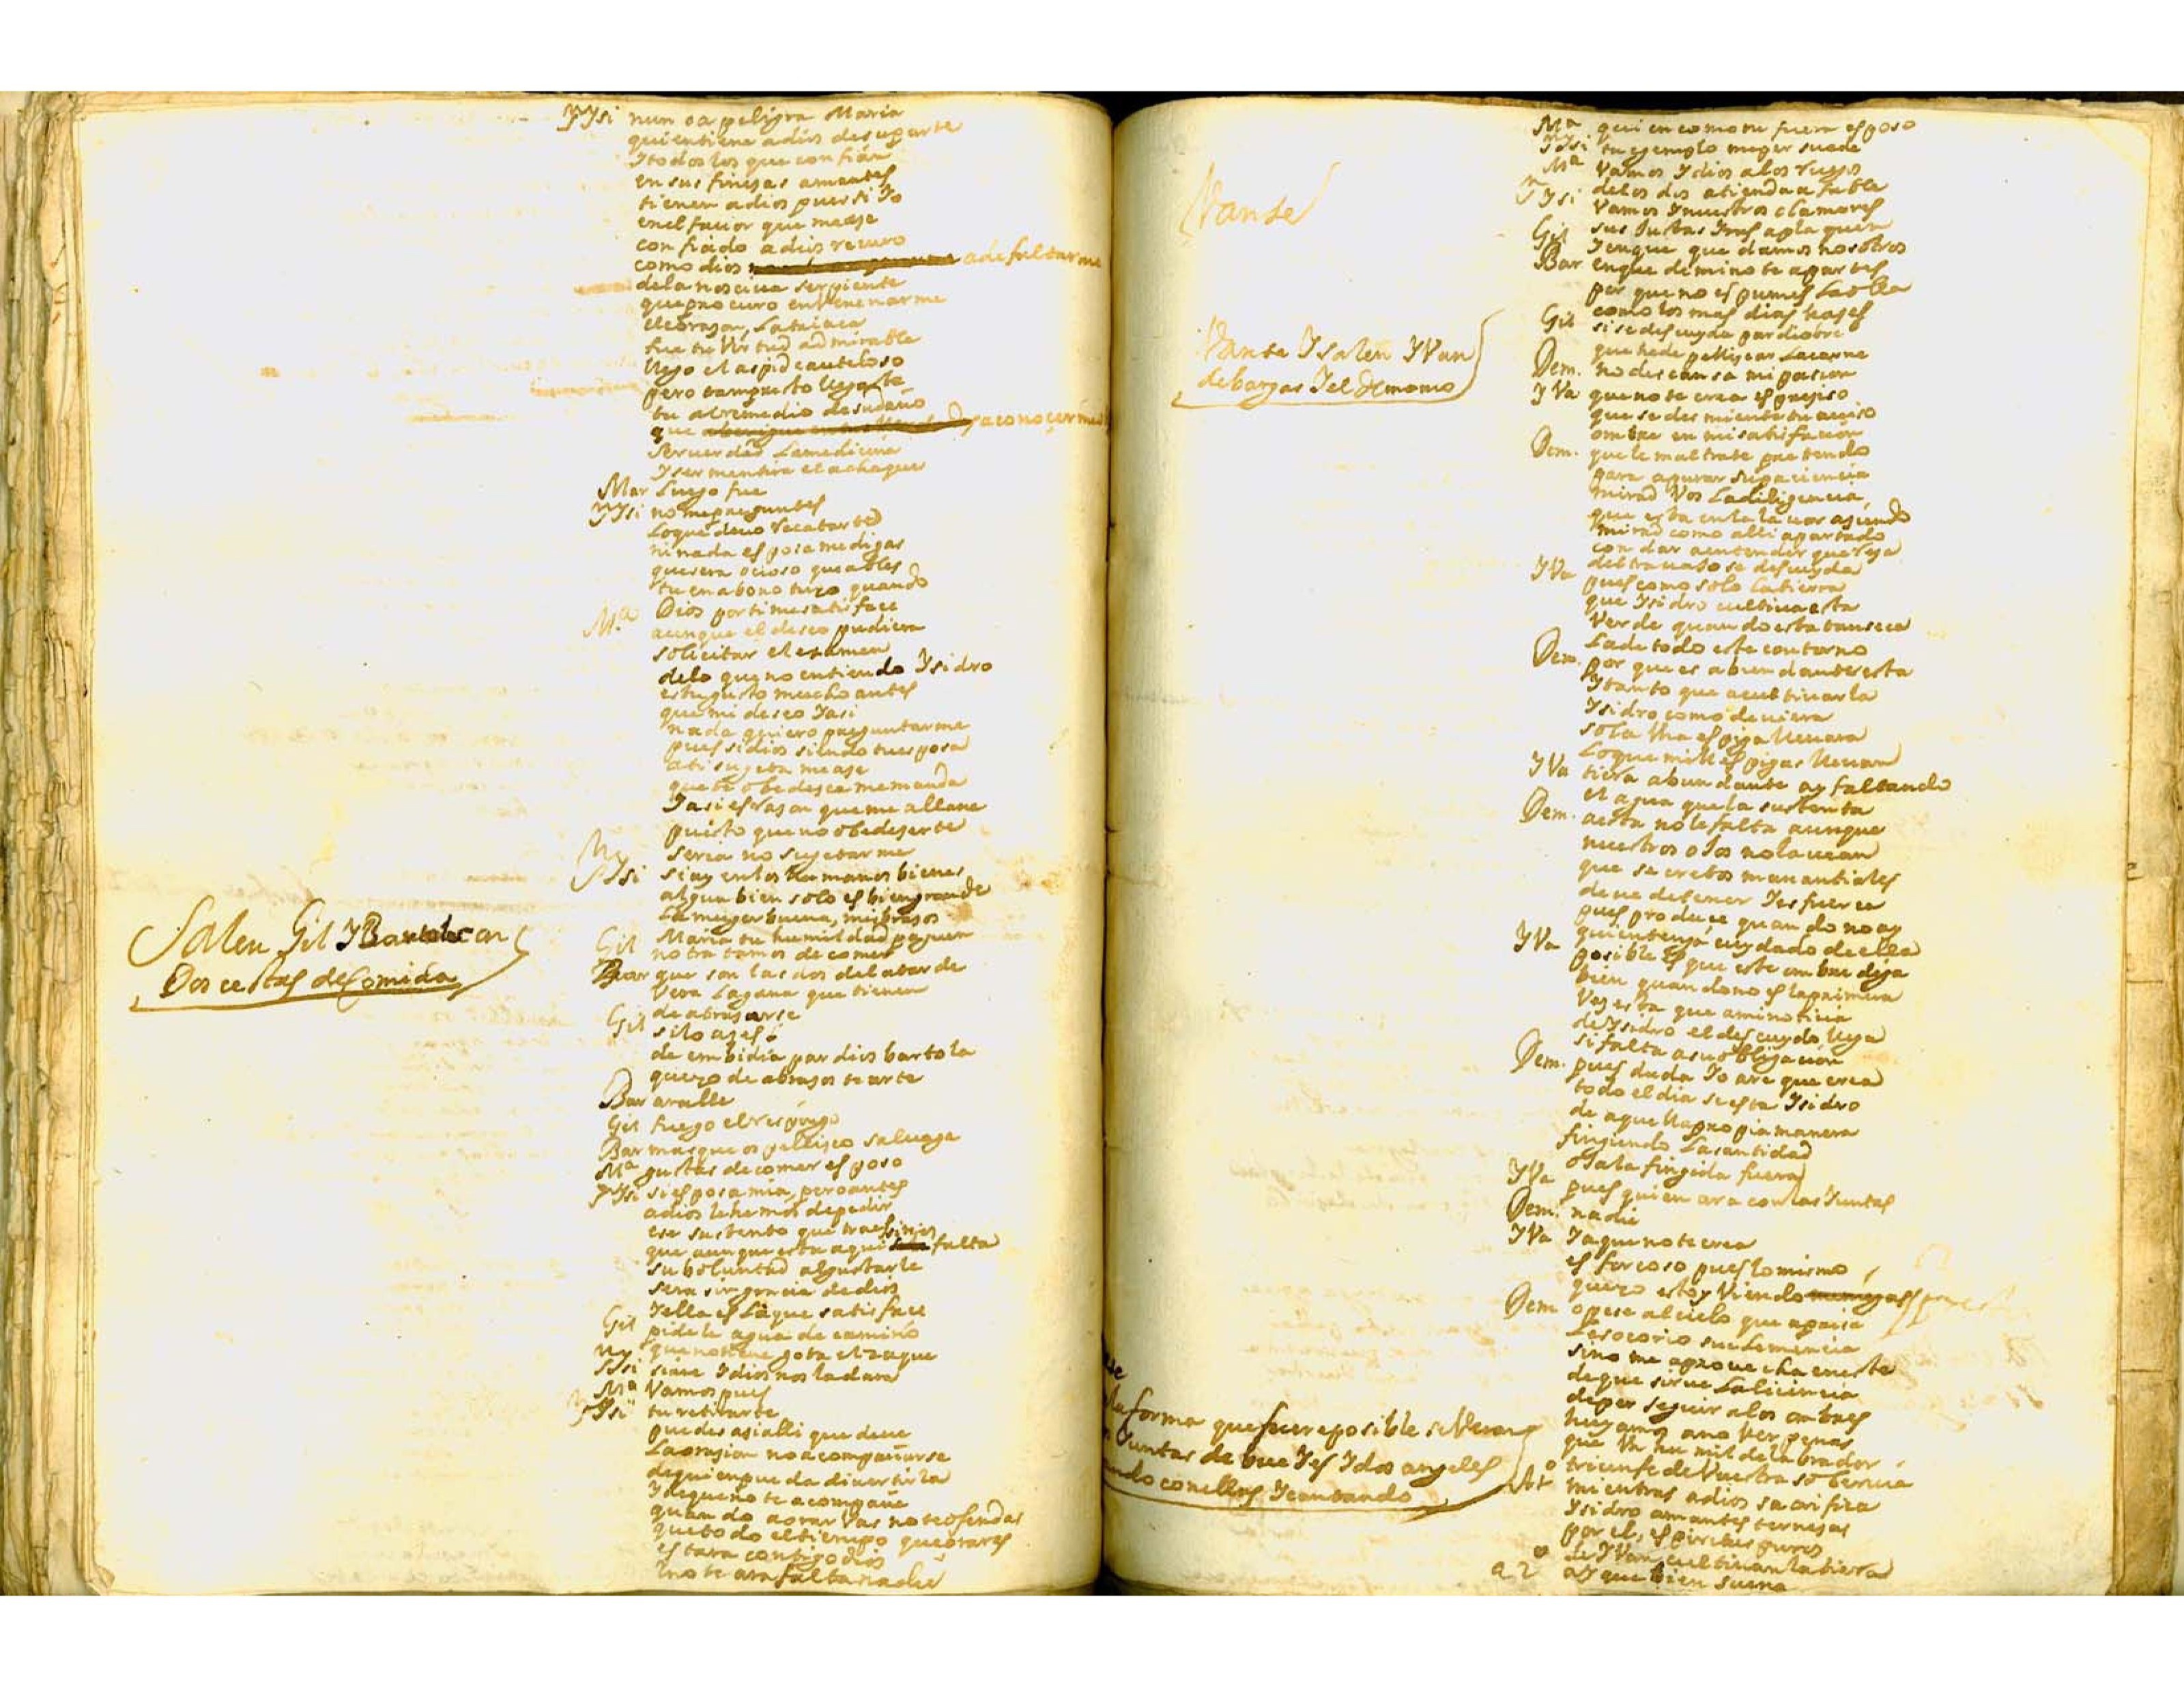 Ysi nunca peligra Maria
quien tiene a dios de su parte
Y todos los que confian
en sus finezas amantes
tienen a dios pues si Yo
en el favor que me ase
confiado a dios recuro
como dios a de faltarme
de la nosciva serpiente
que procuro envenenarme
el corazon, la triaca
fue tu Virtud admirable
llego el aspid cauteloso
pero tan presto llegaste
tu al remedio de su daño
que
ser verdad la medicina
Y ser mentira el achaque
Mar luego fue
Ysi no me preguntes
lo que devo recatarte
ni nada esposa me digas
que sera ocioso que ables
tu en abono tuyo quando
Dios por ti me satisface
Mª aunque el deseo pudiera
solicitar el examen
de lo que no entiendo Ysidro
es tu gusto mucho antes
que mi deseo Y asi
nada quiero preguntarme
pues si dios siendo tu esposa
a ti sugeta me ase
que te obedesca me manda
Y asi es rason que me allane
puesto que no obedeserte
seria no sugetarme
Ysi si ay en los humanos bienes
algun bien solo es bien grande
la muger buena, mis brasos
Maria tu humildad paguen
Gil no tratamos de comer
Bar que son las dos del atarde
Vera la gana que tienen
de abrasarse
Gil si lo ases
de embidia par dios bartola
quiero de abrasos arte
Bar aralle
Gil fuego el respingo
Bar mas que os pellisco salvage
Mª gustas de comer esposo
Ysi si esposa mia, pero antes
a dios le hemos de pedir
ese sustento que traes
que aunque esta aqui si nos falta
su boluntad al gustarle
sera sin gracia de dios
Y ella es la que satisface
Gil pidele agua de camino
que no tiene gota el zaque
Ysi sirve Y dios nos la dara
Mª Vamos pues
Ysi tu retirarte
puedes asi alli que deve
la orasion no acompañarse
de quien pueda divertirla
Y de que no te acompañe
quando a orar Vas no te ofendas
que todo el tiempo que orares
estara contigo dios
Y no te ara falta nadie
Salen Gil Y Bartola con
Dos cestas de Comida
Mª quien como tu fuera esposo
Ysi tu egemplo me persuade
Mª Vamos Y dios a los ruegos
de los dos atienda afable
Ysi Vamos Y nuestros clamores
sus Justas Yras aplaquen
Gil Y en que que damos nosotros
Bar en que de mi no te apartes
por que no espumes la olla
como los mas dias hases
Gil si se descuyda par diobre
que he de pelliscar la carne
Dem. no descansa mi pasion
YVa que no te crea es presiso
que se desmiente tu aviso
ombre en mi satisfacion
Dem. que le maltrate pretendo
para apurar su paciencia
mirad Vos la diligencia
que esta en la lavor asiendo
mirad como alli apartado
con dar a entender que reza
del travajo se descuyda
YVa pues como solo la tierra
que Ysidro cultiva esta
Verde quando esta tan seca
la de todo este contorno
Dem. por que es abundante esta
Y tanto que a cultivarla
Ysidro como deviera
sola Una espiga llevara
lo que mill espigas llevan
YVa tierra abundante ay faltando
el agua que la sustenta
Dem. a esta no le falta aunque
nuestros ojos no la vean
que secretos manantiales
deve de tener Y es fuerca
pues produce quando no ay
quien tenga cuydado de ella
YVa posible es que este ombre diga
bien quando no es la primera
Vez esta que a mi noticia
de Ysidro el descuydo llega
si falta a su obligacion
Dem. pues duda Yo are que crea
todo el dia se esta Ysidro
de aquella propia manera
fingiendo la santidad
YVa Ojala fingida fuera
pues quien ara con las Juntas
Dem. nadie
YVa Ya que no te crea
es forcoso pues lo mismo
que yo estoy Viendo
Dem o pese al cielo que apacia
le socorrio su clemencia
si no me aprovecha en este
de que sirve la licencia
de perseguir a los ombres
huyamos a no ver penas
que Un humilde labrador
triunfe de Vuestra sobervia
mientras a dios sacrifica
Ysidro amantes ternesas
por el, espiritus puros
de Yvan cultivan la tierra
a 2 ay que bien suena
Vanse
Vanse Y salen YVan
de bargas Y el Demonio
la forma que fuere posible se Veran
Juntas de bueyes Y dos angeles
ando con ellas Y cantando